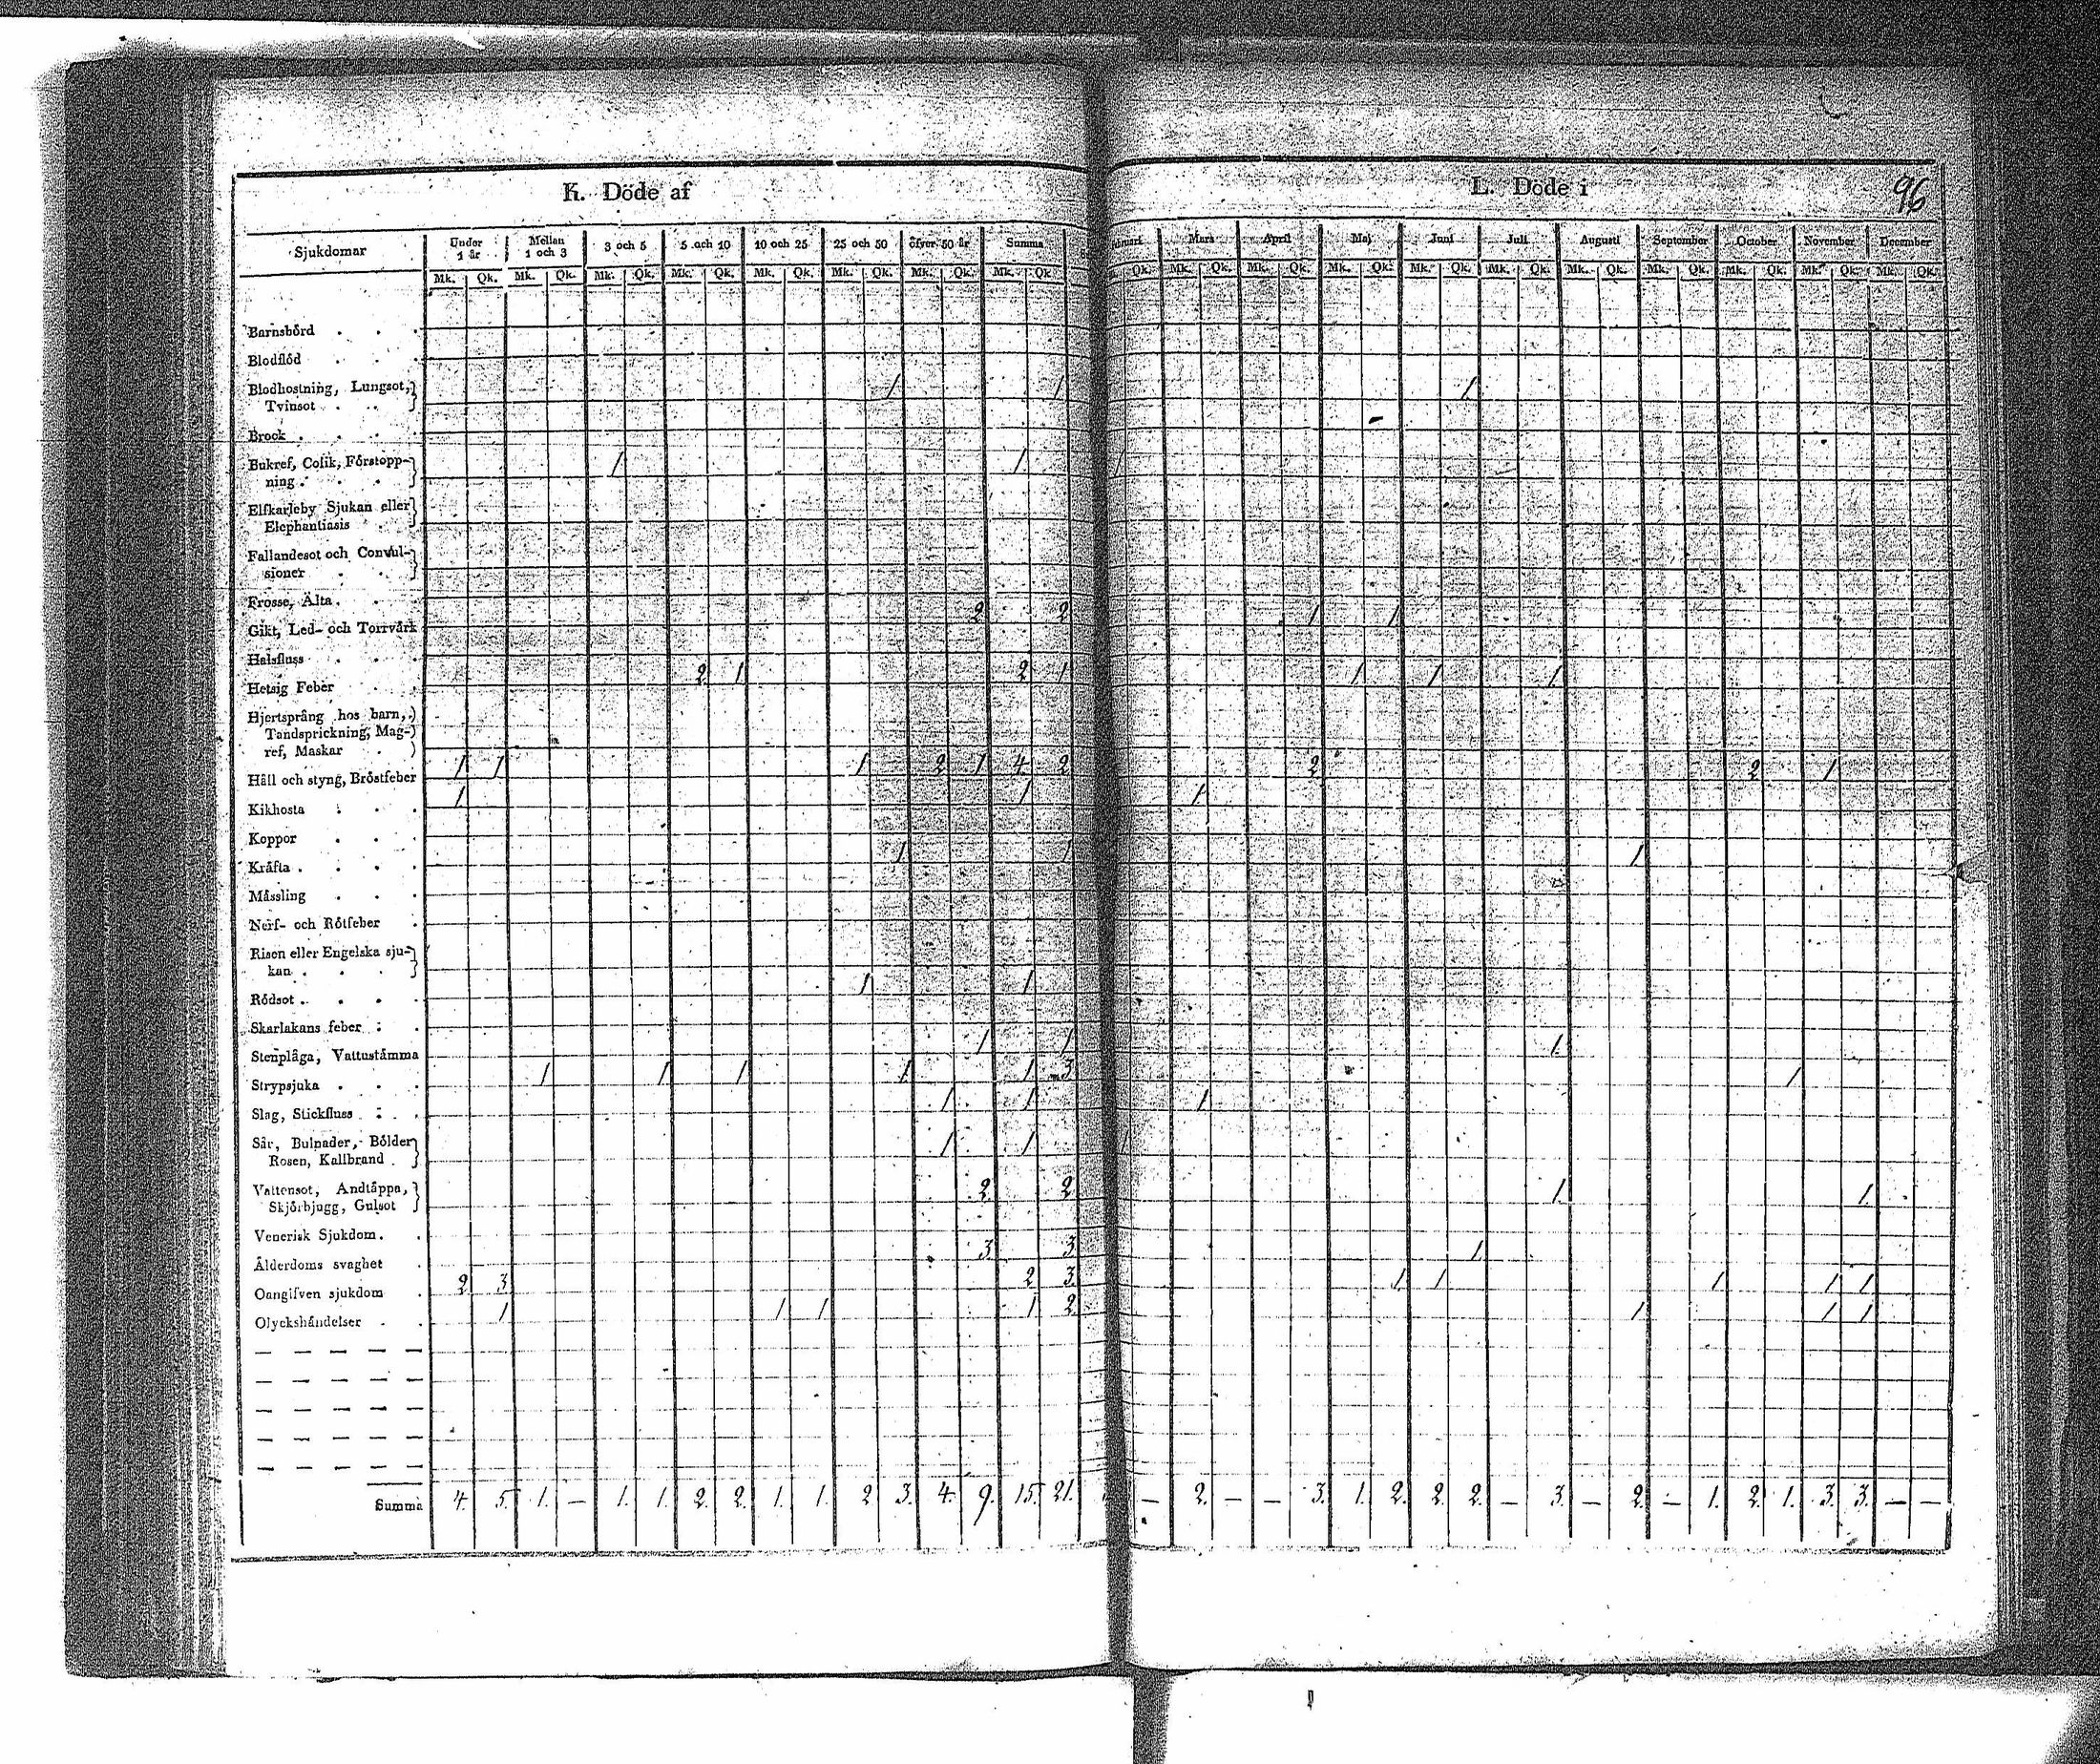 K. Döde af
L. Döde i
96
Sjukdomar
Under 1 år
Mellan 1 och 3
3 och 5
5 och 10
10 och 25
25 och 50
öfver 50 år
Summa
Mars
April
Maj
Juni
Juli
Augusti
September
October
November
December
Mk. Qk. Mk. Qk. Mk. Qk. Mk. Qk. Mk. Qk. Mk. Qk. Mk. Qk. Mk. Qk.
Qk. Mk. Qk. Mk. Qk. Mk. Qk. Mk. Qk. Mk. Qk. Mk. Qk. Mk. Qk. Mk. Qk. Mk. Qk. Mk. Qk.
Barnsbörd
Blodflöd
Blodhostning, Lungsot,
Tvinsot 1 1 1
Brock
Bukref, Colik, Förstopp-
ning 1 1 1
Elfkarleby Sjukan eller
Elephantiasis
Fallandesot och Convul-
sioner
Frosse, Älta
Gikt, Led- och Torrvärk 2 2 1 1
Halsfluss
Hetsig Feber 2 1 2 1 1 1 1
Hjertsprång hos barn,
Tandsprickning, Mag-
ref, Maskar
Håll och styng, Bröstfeber 1 1 1 2 1 4 2 2 2 1
Kikhosta 1 1 1
Koppor
Kräfta 1 1 1
Mässling
Nerf- och Rötfeber
Risen eller Engelska sju-
kan
Rödsot 1 1
Skarlakans feber
Stenplåga, Vattustämma 1 1 1
Strypsjuka 1 1 1 1 1 3 1
Slag, Stickfluss 1 1 1
Sår, Bulnader, Bölder
Rosen, Kallbrand 1 1 1
Vattensot, Andtäppa,
Skjörbjugg, Gulsot 2 2 1 1
Venerisk Sjukdom
Ålderdoms svaghet 3 3 1
Oangifven sjukdom 2 3 2 3 1 1 1 1 1
Olyckshändelser 1 1 1 1 2 1 1 1
Summa 4. 5. 1. — 1. 1. 2. 2. 1. 1. 2 3. 4. 9. 15. 21.
— 2. — — 3. 1. 2. 2. 2. — 3. — 2. — 1. 2. 1. 3. 3. — —